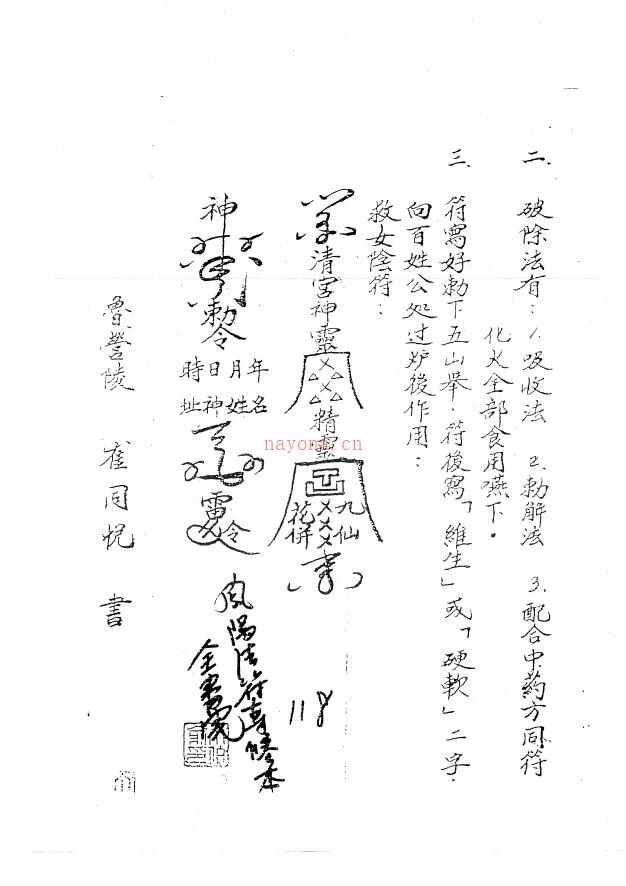 二、破除法有：1.吸收法 2.勅解法 3.配合中药方同符
化火全部食用嚥下。
三、符寫好勅下五山舉．符後寫「維生」或「硬軟」二字．
向百姓公处过炉後作用：
救女陰符：
清宮神靈
精靈
九仙
花併
神
勅令
年月日時
名姓神址
雷令
鳳陽法符專勝本
118
魯營陵 崔同悦 書
nayona.cn